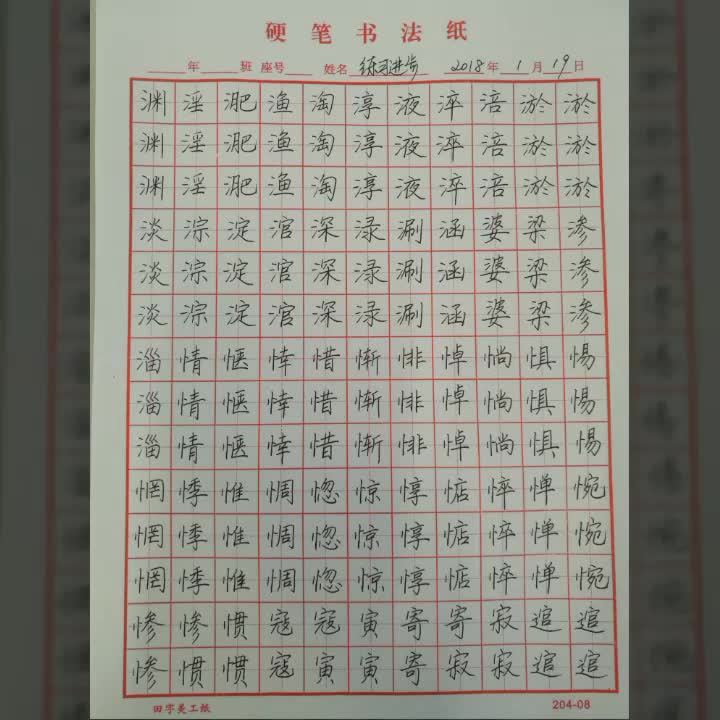 硬笔书法纸
年 班 座号 姓名 练习进步 2018年 1月 19日
渊淫淝渔淘淳液淬涪淤淤
渊淫淝渔淘淳液淬涪淤淤
渊淫淝渔淘淳液淬涪淤淤
淡淙淀涫深渌涮涵婆梁渗
淡淙淀涫深渌涮涵婆梁渗
淡淙淀涫深渌涮涵婆梁渗
淄情惬悻惜惭悱悼惝惧惕
淄情惬悻惜惭悱悼惝惧惕
淄情惬悻惜惭悱悼惝惧惕
惘悸惟惆惚惊惇惦悴惮惋
惘悸惟惆惚惊惇惦悴惮惋
惘悸惟惆惚惊惇惦悴惮惋
惨惨惯寇寇寅寄寄寂逭逭
惨惯惯寇寅寅寄寂寂逭逭
田字美工纸 204-08